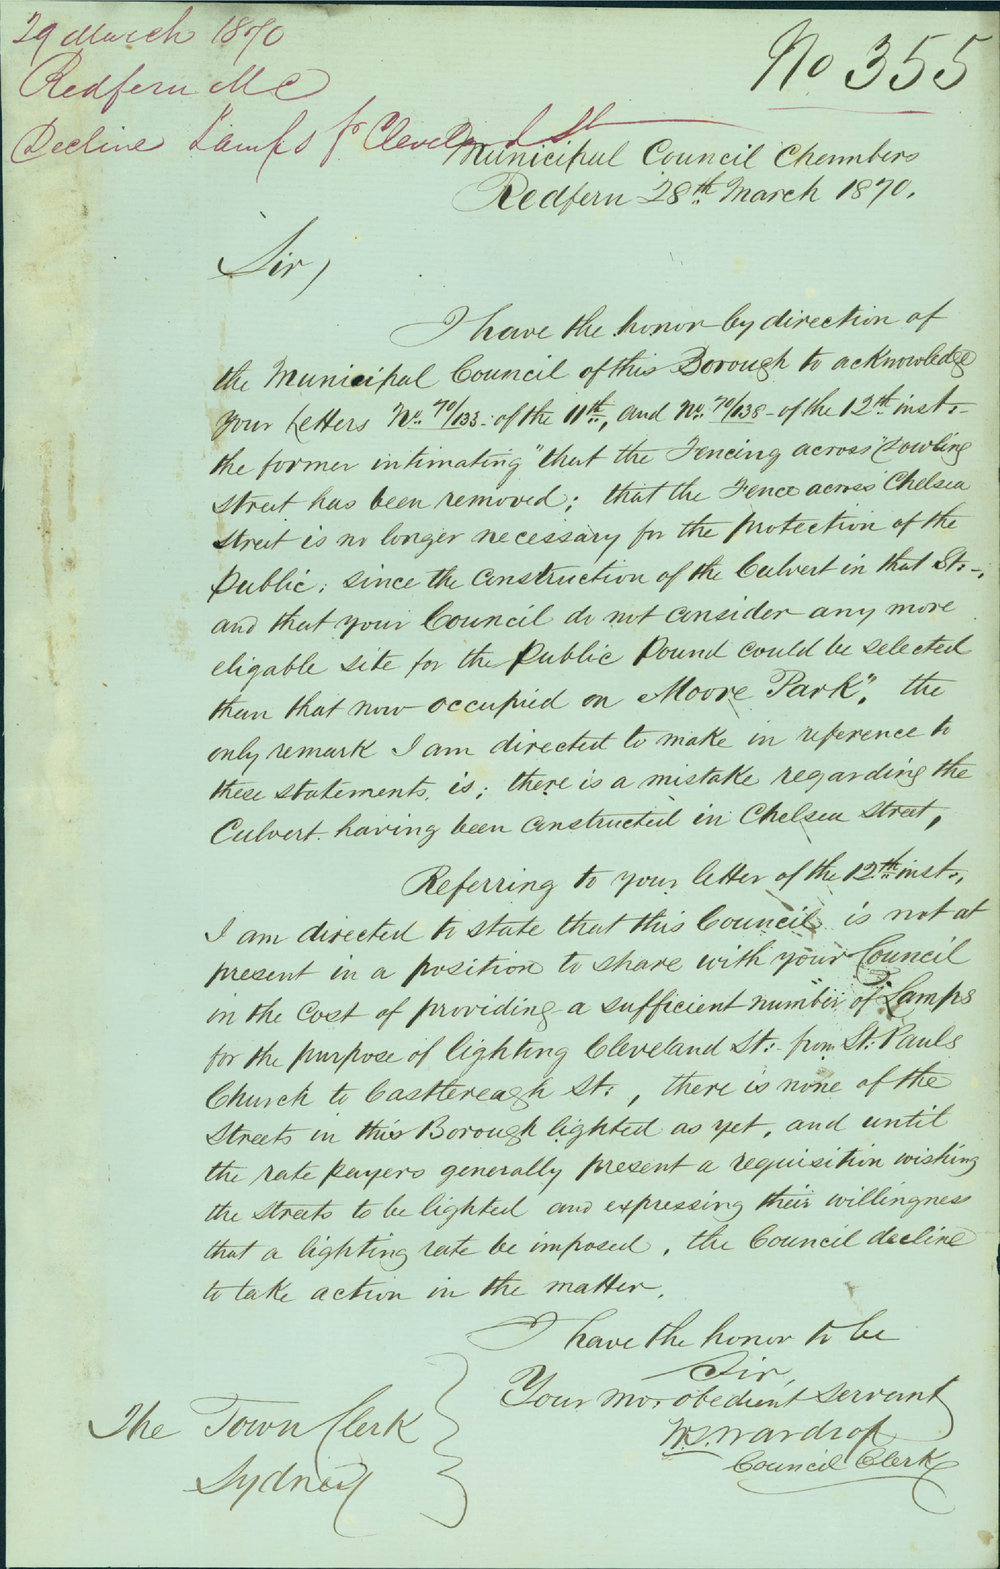 29 March 1870
Redfern MC
Decline Lamps for Cleveland St
No 355
Municipal Council Chambers
Redfern 28th March 1870.
Sir,
I have the honor by direction of
the Municipal Council of this Borough to acknowledge
your Letters No. 70/133 - of the 11th, and No. 70/138 - of the 12th inst. -
the former intimating "that the Fencing across Dowling
street has been removed; that the Fence across Chelsea
street is no longer necessary for the protection of the
Public; since the construction of the Culvert in that St. -,
and that your Council do not consider any more
eligable site for the Public Pound could be selected
than that now occupied on Moore Park", the
only remark I am directed to make in reference to
these statements, is; there is a mistake regarding the
Culvert having been constructed in Chelsea Street,
Referring to your letter of the 12th inst.,
I am directed to state that this Council is not at
present in a position to share with your Council
in the cost of providing "a sufficient number of Lamps
for the purpose of lighting Cleveland St: from St. Pauls
Church to Castlereagh St., there is none of the
Streets in this Borough lighted as yet, and until
the rate payers generally present a requisition wishing
the streets to be lighted and expressing their willingness
that a lighting rate be imposed, the Council decline
to take action in the matter.
I have the honor to be
Sir,
Your mo. obedient servant
W.S. Wardrop
Council Clerk
The Town Clerk
Sydney